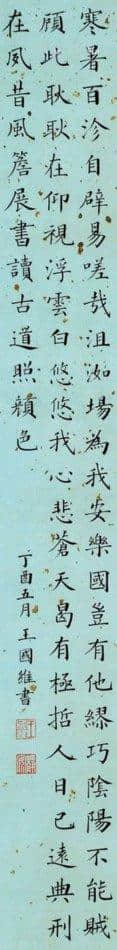 寒暑百沴自辟易嗟哉沮洳場為我安樂國豈有他繆巧陰陽不能賊
顧此耿耿在仰視浮雲白悠悠我心悲蒼天曷有極哲人日已遠典刑
在夙昔風簷展書讀古道照顏色
丁酉五月王國維書